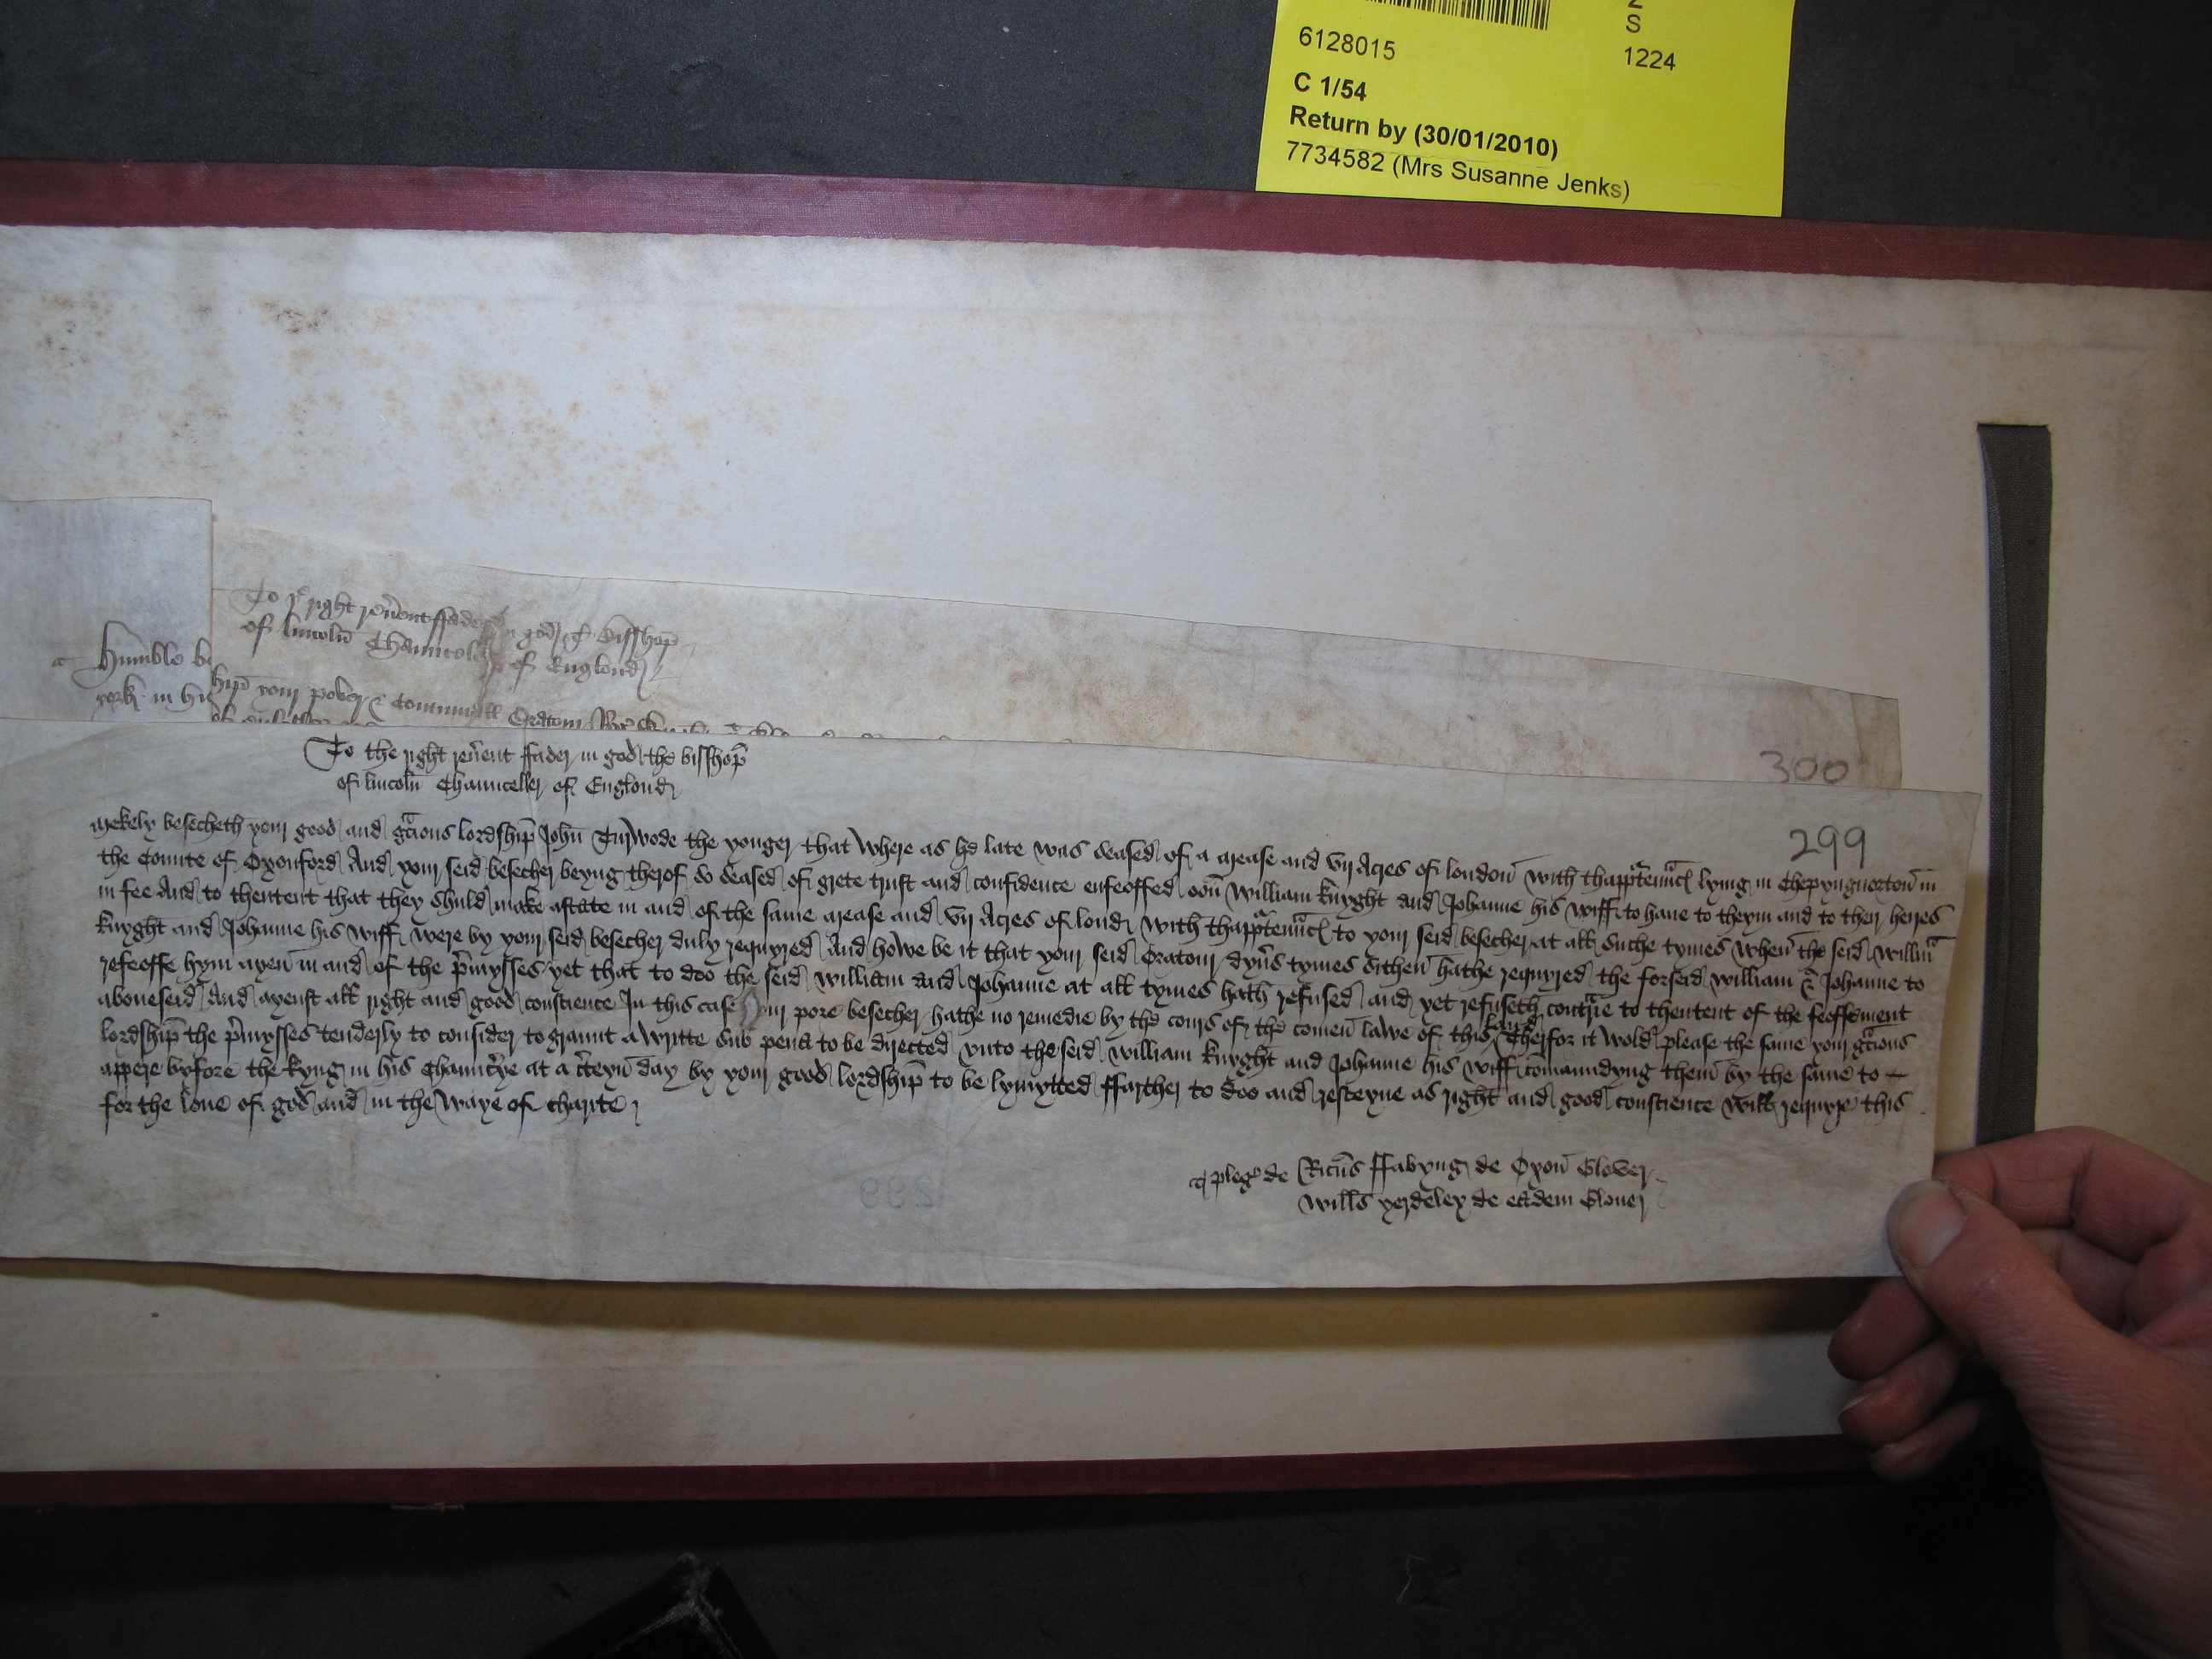 2
S
6128015
1224
C 1/54
Return by (30/01/2010)
7734582 (Mrs Susanne Jenks)
To þe right reũent ffader in god þe bisshop
of lincoln Chaunceler of Englond
Humble be
hip your pover & contynuall Oratour
york in hu
300
To the right reũent ffader in god the bisshop̄
of lincoln̄ Chaunceller of Englond
299
Mekely besecheth your good and gracious lordship̄ John̄ Turwode the yonger that where as he late was seased of a mease and vij Acres of londe with thapp̄ten̄nc lying in Chepyngnorton in
the Counte of Oxonford And your seid besecher beyng therof so seased of grete trust and confidence enfeoffed oon̄ William Knyght and Johanne his wiff to haue to theym and to their heyres
in fee And to thentent that they shuld make astate in and of the same mease and vij Acres of lond with thapp̄ten̄nc to your seid besecher at all suche tymes when̄ the seid Willm̄
Knyght and Johanne his wiff were by your seid besecher duly requyred And howe be it that your seid Oratour dyũs tymes sithen̄ hathe requyred the forseid William & Johanne to
refeoffe hym ayen̄ in and of the p̄mysses yet that to doo the seid William and Johanne at all tymes hath refused and yet refuseth contrie to thentent of the feoffement
aboueseid And ayenst all right and good conscience In this case your pore besecher hathe no remedie by the cours of the comen̄ lawe of this land Therfor it wold please the same your gracious
lordship̄ the p̄mysses tenderly to consider to graunt a writte sub pena to be directed vnto the seid William Knyght and Johanne his wiff comaundyng them̄ by the same to
appere byfore the kyng in his Chaunc̄ye at a c̄teyn̄ day by your good lordship̄ to be lymytted ffarther to doo and resceyue as right and good conscience will requyre this
for the loue of god and in the waye of charite
pleg de Ric̄us ffabyng de Oxon̄ Glover
Willūs yerdeley de eadem Glouer